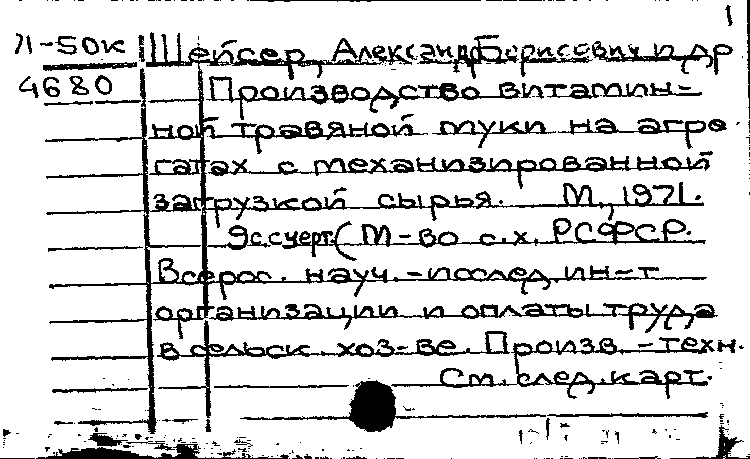 1
71-50к Шейсер, Александр Борисович и др
4680 Производство витамин-
ной травяной муки на агре-
гатах с механизированной
загрузкой сырья. М., 1971.
9с.с черт. (М-во с.х. РСФСР.
Всерос. науч.-исслед. ин-т
организации и оплаты труда
в сельск. хоз-ве. Произв.-техн.
См. след. карт.